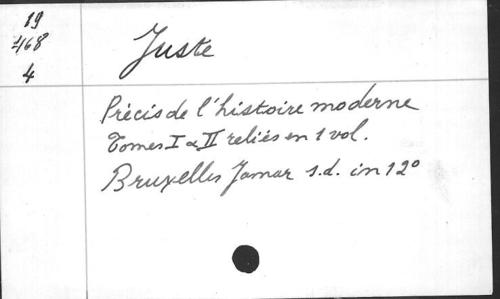 19
468
4
Juste
Précis de l'histoire moderne
Tomes I & II reliés en 1 vol.
Bruxelles Jamar s.d. in 12°